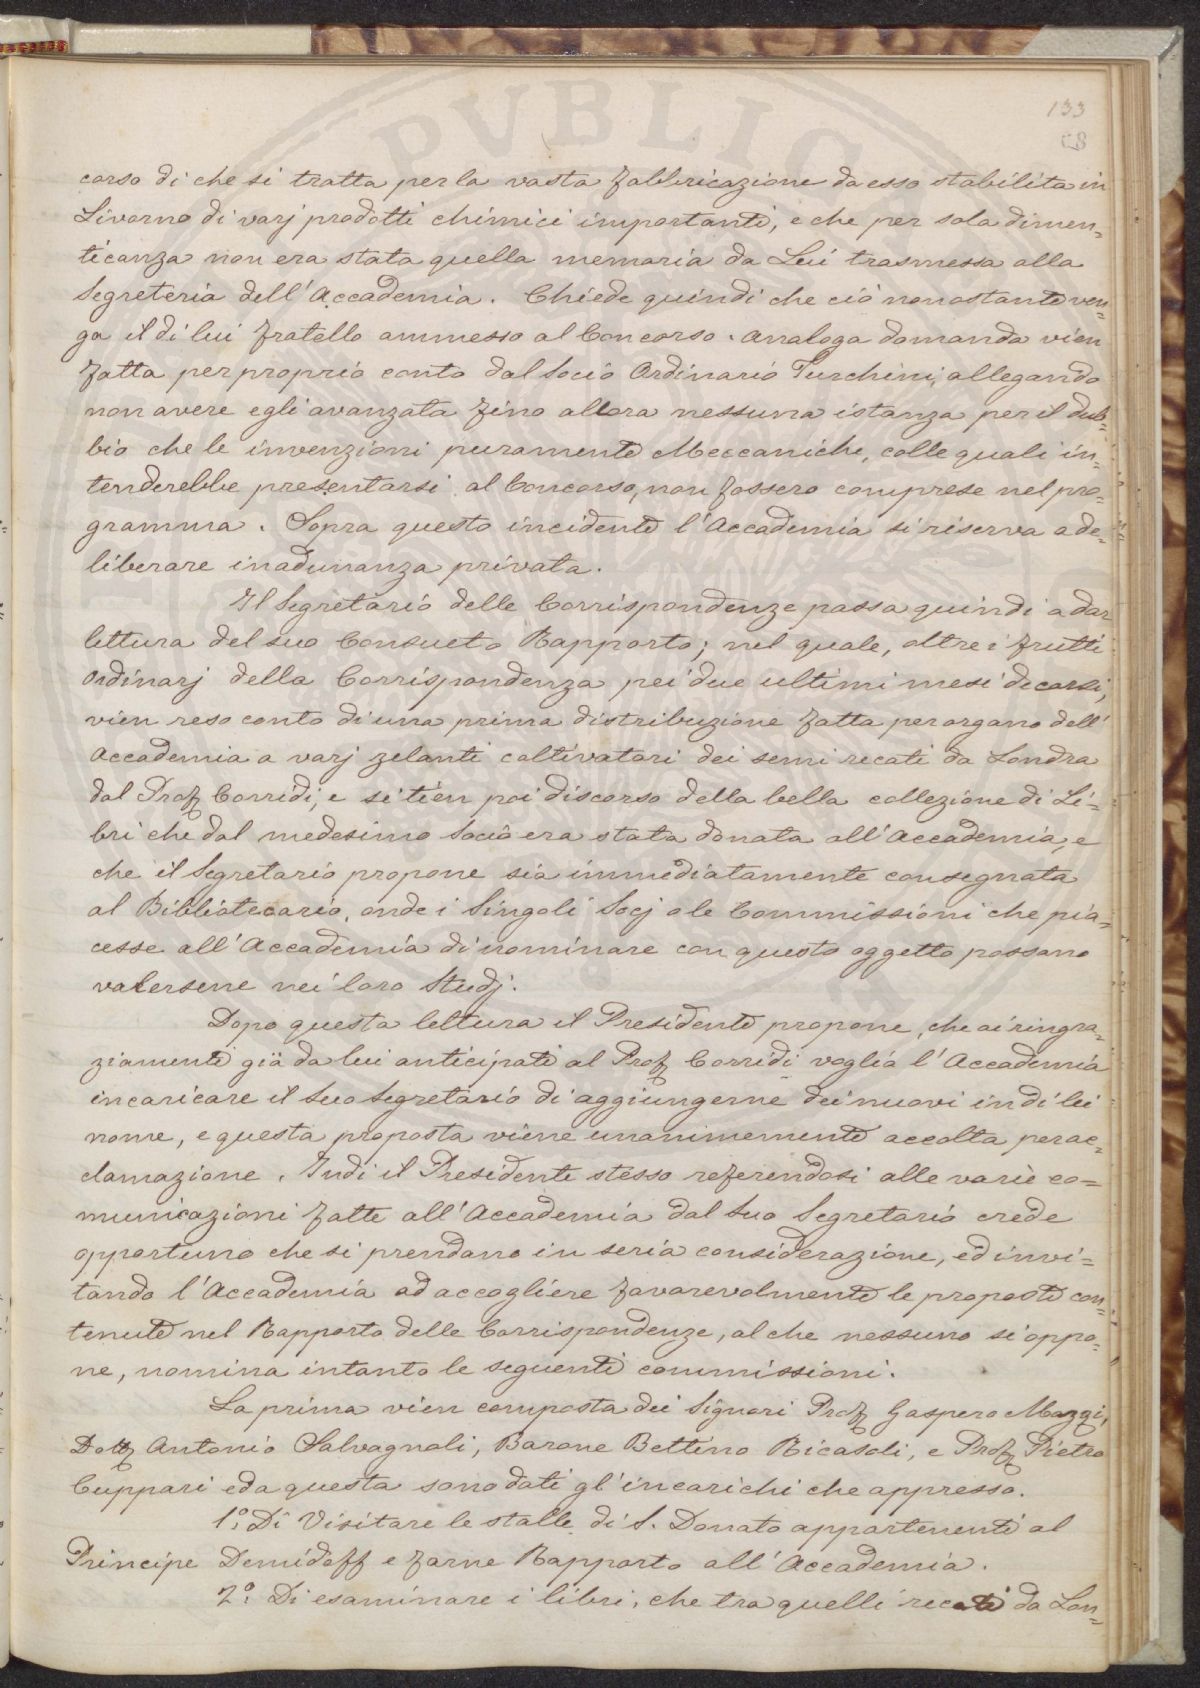 133
68
corso di che si tratta per la vasta fabbricazione da esso stabilita in
Livorno di varj prodotti chimici importanti, e che per sola dimen=
ticanza non era stata quella memoria da Lui trasmessa alla
Segreteria dell'Accademia. Chiede quindi che ciò nonostante ven=
ga il di lui fratello ammesso al Concorso. Analoga domanda vien
fatta per proprio conto dal Socio Ordinario Turchini, allegando
non avere egli avanzata fino allora nessuna istanza per il dub=
bio che le invenzioni puramente Meccaniche, colle quali in=
tenderebbe presentarsi al Concorso, non fossero comprese nel pro=
gramma. Sopra questo incidente l'Accademia si riserva a de=
liberare in adunanza privata.
Il Segretario delle Corrispondenze passa quindi a dar
lettura del suo Consueto Rapporto; nel quale, oltre i frutti
Ordinarj della Corrispondenza pei due ultimi mesi decorsi,
vien reso conto di una prima distribuzione fatta per organo dell'
Accademia a varj zelanti coltivatori dei semi recati da Londra
dal Prof. Corridi, e si tien poi discorso della bella collezione di Li=
bri che dal medesimo Socio era stata donata all'Accademia, e
che il Segretario propone sia immediatamente consegnata
al Bibliotecario, onde i Singoli Socj o le Commissioni che pia=
cesse all'Accademia di nominare con questo oggetto possano
valersene nei loro Studj.
Dopo questa lettura il Presidente propone, che ai ringra=
ziamenti già da lui anticipati al Prof. Corridi voglia l'Accademia
incaricare il suo Segretario di aggiungerne dei nuovi in di lei
nome, e questa proposta viene unanimemente accolta per ac=
clamazione. Indi il Presidente stesso referendosi alle varie co=
municazioni fatte all'Accademia dal suo Segretario crede
opportuno che si prendano in seria considerazione, ed invi=
tando l'Accademia ad accogliere favorevolmente le proposte con=
tenute nel Rapporto delle Corrispondenze, al che nessuno si oppo=
ne, nomina intanto le seguenti commissioni.
La prima vien composta dei Signori Prof. Gaspero Mazzi,
Dott. Antonio Salvagnoli, Barone Bettino Ricasoli, e Prof. Pietro
Cuppari ed a questa sono dati gl'incarichi che appresso.
1.° Di Visitare le stalle di S. Donato appartenenti al
Principe Demidoff e farne Rapporto all'Accademia.
2.° Di esaminare i libri, che tra quelli recati da Lon=